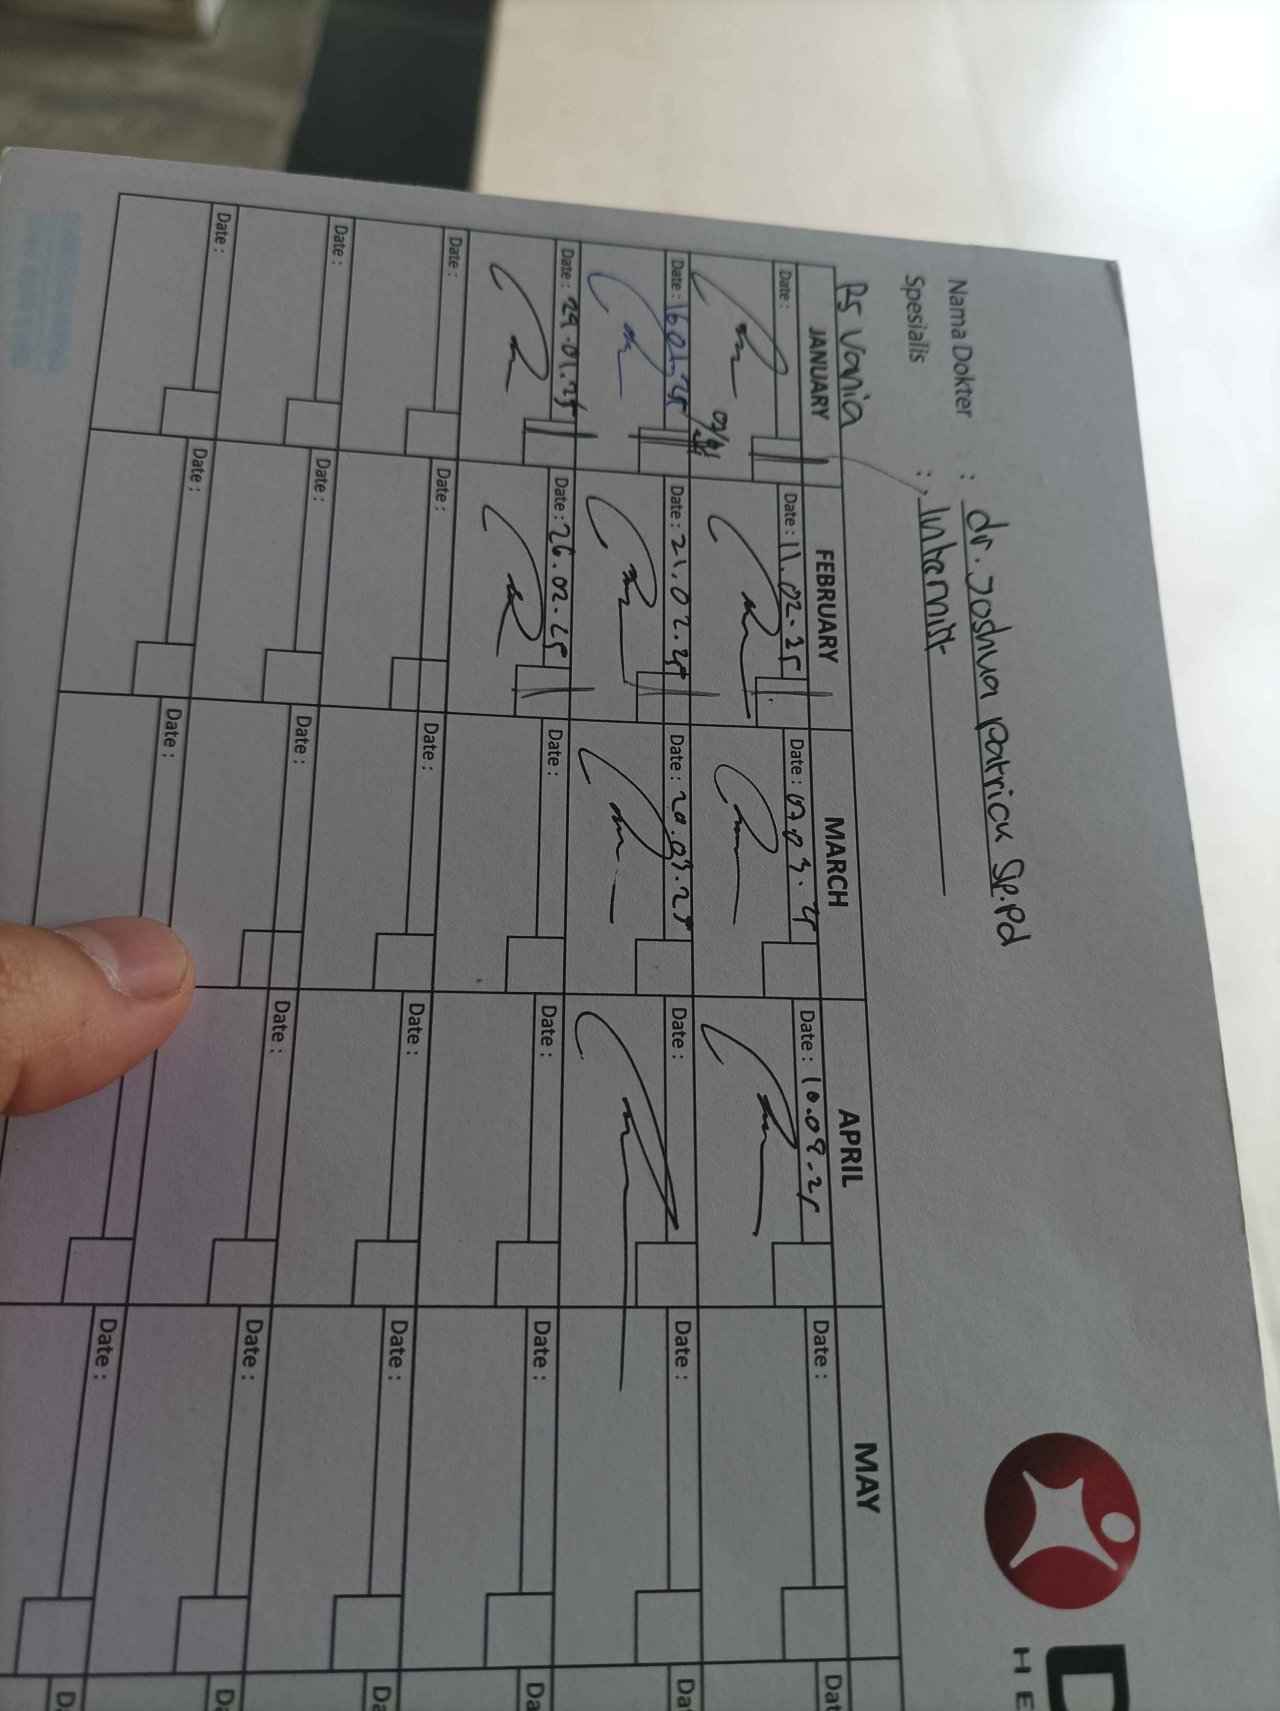 Nama Dokter : dr. Joshua Patrick Sp.Pd
Spesialis : Internist
RS Vania
D
HE
JANUARY FEBRUARY MARCH APRIL MAY
Date : Date : 11.02.25 Date : 07.03.25 Date : 10.04.25 Date : Dat
Date : 16.01.25 Date : 21.02.25 Date : 20.03.25 Date : Date : Dat
Date : 29.01.25 Date : 26.02.25 Date : Date : Date : Da
Date : Date : Date : Date : Date : Da
Date : Date : Date : Date : Date : Da
Date : Date : Date : Date : Da